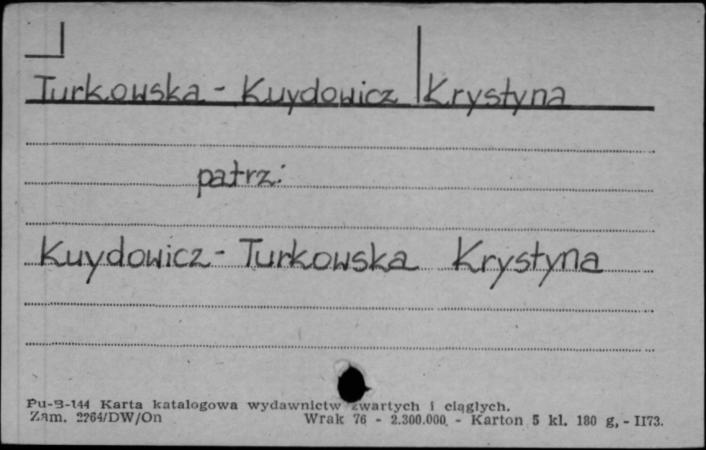 Turkowska - Kuydowicz Krystyna
patrz:
Kuydowicz - Turkowska Krystyna
Pu-B-144 Karta katalogowa wydawnictw zwartych i ciągłych.
Zam. 2264/DW/On Wrak 76 - 2.300.000. - Karton 5 kl. 180 g, - II73.